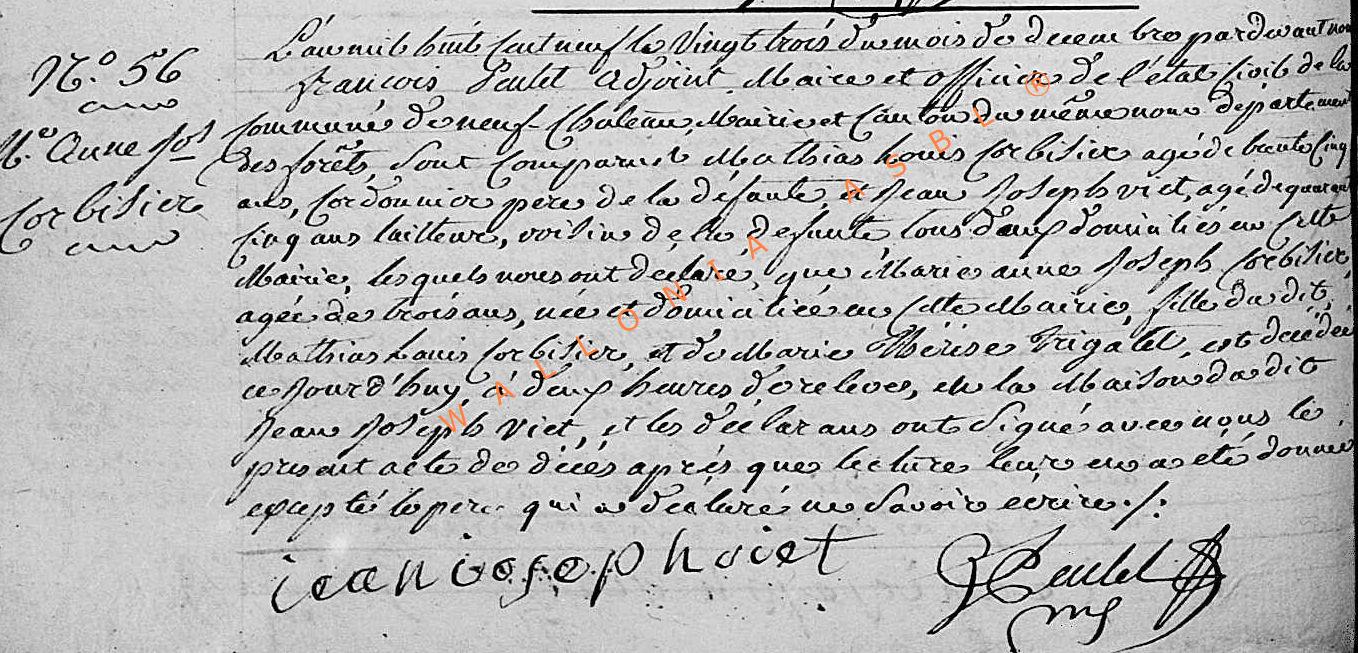 N.o 56
M.e Anne Jos.
Corbisier
L'an mil huit cent neuf le vingt trois du mois de decembre pardevant nous
françois Peulet adjoint Maire et officier de l'état Civil de la
Commune de neuf-Chateau, Mairie et Canton du même nom departement
des forêts, sont comparus Mathias Louis Corbisier agé de trente cinq
ans, Cordonnier pere de la défunte, et Jean Joseph viet, agé de quarante
cinq ans tailleur, voisin de la defunte, tous deux domiciliés en cette
Mairie, lesquels nous ont déclaré, que Marie anne Joseph Corbisier,
agée de trois ans, née et domiciliée en cette Mairie, fille du dit
Mathias Louis Corbisier, et de Marie Thérèse Trigalet, est decédée
ce jourd'huy, à deux heures de relevée, en la Maison du dit
Jean Joseph viet, et les déclarans ont signé avec nous le
present acte de décés après que lecture leur en a eté donnée
excepté le pere qui a déclaré ne savoir ecrire ./.
jean iosep h viet
Peulet
WALLONIA ASBL ®